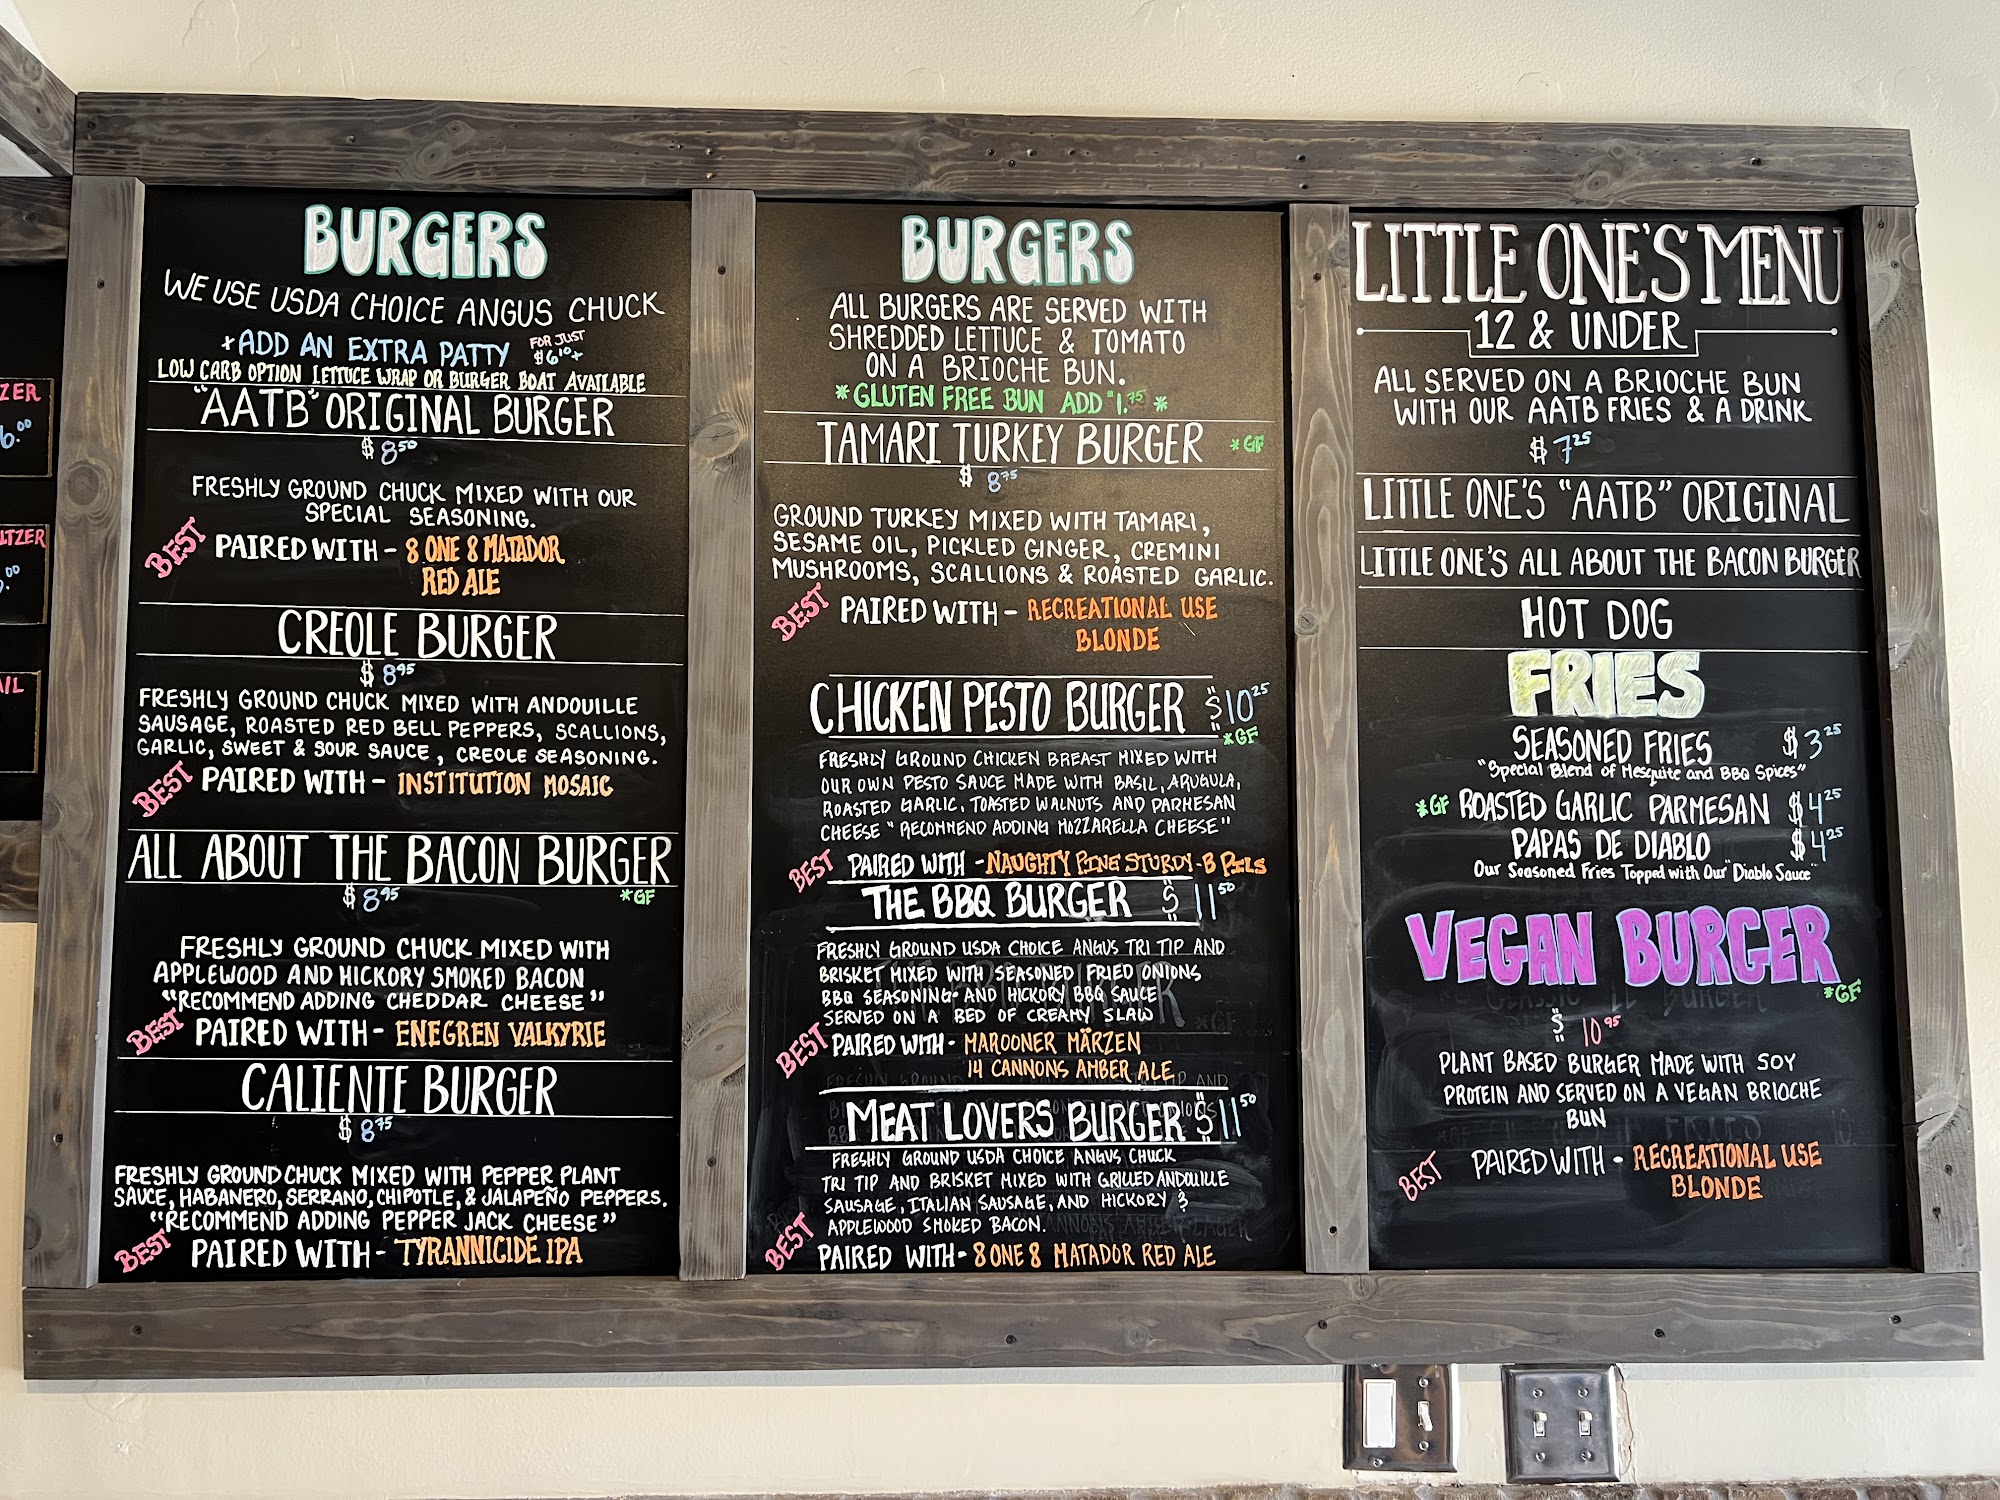 ZER
6.00
LTZER
.00
AIL
BURGERS
WE USE USDA CHOICE ANGUS CHUCK
+ADD AN EXTRA PATTY FOR JUST
$6¹⁰+
LOW CARB OPTION LETTUCE WRAP OR BURGER BOAT AVAILABLE
"AATB" ORIGINAL BURGER
$8⁵⁰
FRESHLY GROUND CHUCK MIXED WITH OUR
SPECIAL SEASONING.
BEST PAIRED WITH - 8 ONE 8 MATADOR
RED ALE
CREOLE BURGER
$8⁹⁵
FRESHLY GROUND CHUCK MIXED WITH ANDOUILLE
SAUSAGE, ROASTED RED BELL PEPPERS, SCALLIONS,
GARLIC, SWEET & SOUR SAUCE, CREOLE SEASONING.
BEST PAIRED WITH - INSTITUTION MOSAIC
ALL ABOUT THE BACON BURGER
$8⁹⁵ *GF
FRESHLY GROUND CHUCK MIXED WITH
APPLEWOOD AND HICKORY SMOKED BACON
"RECOMMEND ADDING CHEDDAR CHEESE"
BEST PAIRED WITH - ENEGREN VALKYRIE
CALIENTE BURGER
$8⁷⁵
FRESHLY GROUND CHUCK MIXED WITH PEPPER PLANT
SAUCE, HABANERO, SERRANO, CHIPOTLE, & JALAPEÑO PEPPERS.
"RECOMMEND ADDING PEPPER JACK CHEESE"
BEST PAIRED WITH - TYRANNICIDE IPA
BURGERS
ALL BURGERS ARE SERVED WITH
SHREDDED LETTUCE & TOMATO
ON A BRIOCHE BUN.
*GLUTEN FREE BUN ADD $1.⁷⁵ *
TAMARI TURKEY BURGER *GF
$8⁷⁵
GROUND TURKEY MIXED WITH TAMARI,
SESAME OIL, PICKLED GINGER, CREMINI
MUSHROOMS, SCALLIONS & ROASTED GARLIC.
BEST PAIRED WITH - RECREATIONAL USE
BLONDE
CHICKEN PESTO BURGER $10²⁵
*GF
FRESHLY GROUND CHICKEN BREAST MIXED WITH
OUR OWN PESTO SAUCE MADE WITH BASIL, ARUGULA,
ROASTED GARLIC, TOASTED WALNUTS AND PARMESAN
CHEESE "RECOMMEND ADDING MOZZARELLA CHEESE"
BEST PAIRED WITH - NAUGHTY PINE STURDY-B PILS
THE BBQ BURGER $11⁵⁰
FRESHLY GROUND USDA CHOICE ANGUS TRI TIP AND
BRISKET MIXED WITH SEASONED FRIED ONIONS
BBQ SEASONING AND HICKORY BBQ SAUCE
SERVED ON A BED OF CREAMY SLAW
BEST PAIRED WITH - MAROONER MÄRZEN
14 CANNONS AMBER ALE
MEAT LOVERS BURGER $11⁵⁰
FRESHLY GROUND USDA CHOICE ANGUS CHUCK
TRI TIP AND BRISKET MIXED WITH GRILLED ANDOUILLE
SAUSAGE, ITALIAN SAUSAGE, AND HICKORY &
APPLEWOOD SMOKED BACON.
BEST PAIRED WITH - 8 ONE 8 MATADOR RED ALE
LITTLE ONE'S MENU
12 & UNDER
ALL SERVED ON A BRIOCHE BUN
WITH OUR AATB FRIES & A DRINK
$7²⁵
LITTLE ONE'S "AATB" ORIGINAL
LITTLE ONE'S ALL ABOUT THE BACON BURGER
HOT DOG
FRIES
SEASONED FRIES $3²⁵
"Special Blend of Mesquite and BBQ Spices"
*GF ROASTED GARLIC PARMESAN $4²⁵
PAPAS DE DIABLO $4²⁵
Our Seasoned Fries Topped with Our "Diablo Sauce"
VEGAN BURGER
*GF
$10⁹⁵
PLANT BASED BURGER MADE WITH SOY
PROTEIN AND SERVED ON A VEGAN BRIOCHE
BUN
BEST PAIRED WITH - RECREATIONAL USE
BLONDE